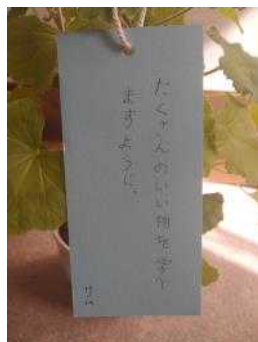 たくさんのいい物を学び
ますように。
サム